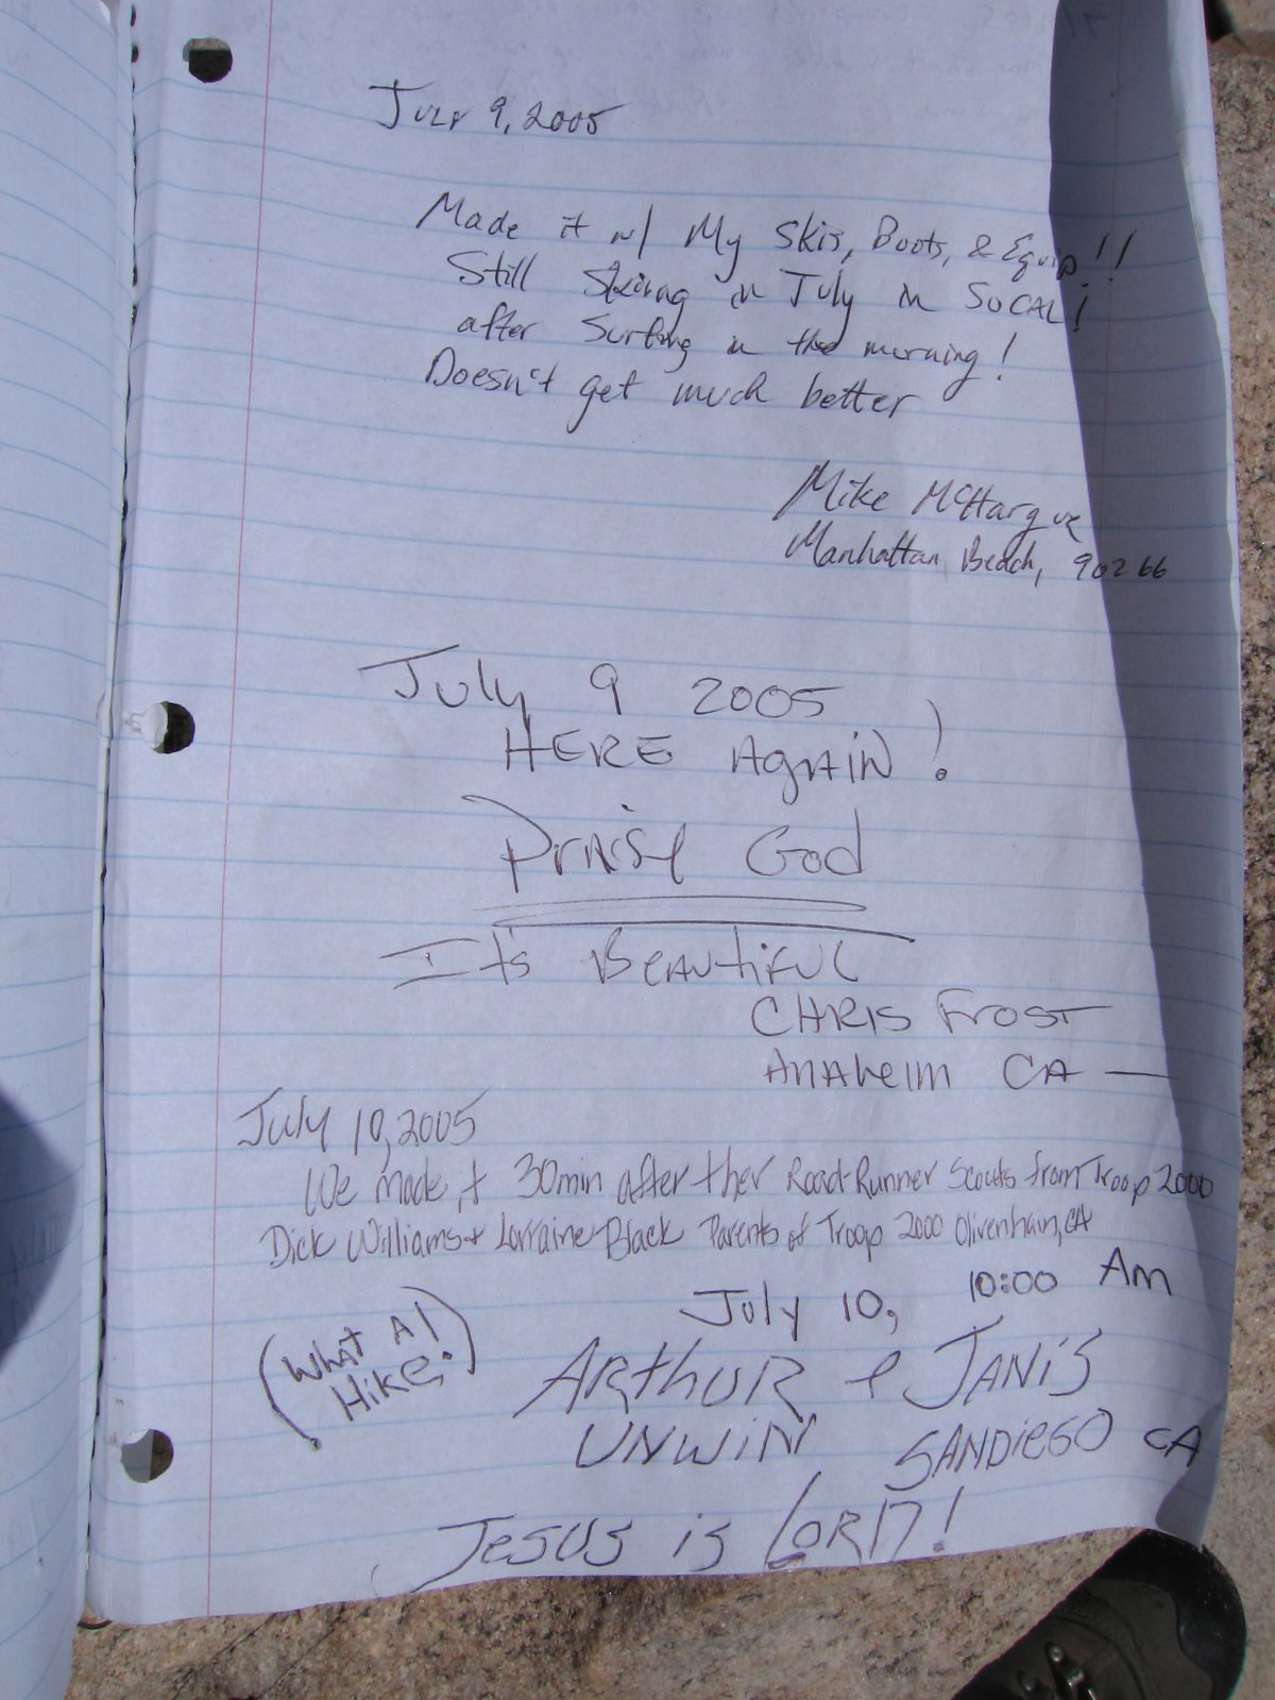 July 9, 2005
Made it w/ My Skis, Boots, & Equip!!
Still Skiing in July in SoCAL!
after Surfing in the morning!
Doesn't get much better
Mike McHargue
Manhattan Beach, 90266
July 9 2005
HERE AgAiN!
Praise God
It's BEAUtiFUL
CHRIS FROST
ANAheim CA —
July 10, 2005
We made it 30min after ther Road-Runner Scouts from Troop 2000
Dick Williams + Lorraine Black Parents of Troop 2000 Olivenhain, CA
July 10, 10:00 Am
(What A!
Hike!)
ARthUR & JANiS
UNWiN SANDiEGO CA
JESUS iS LORD!